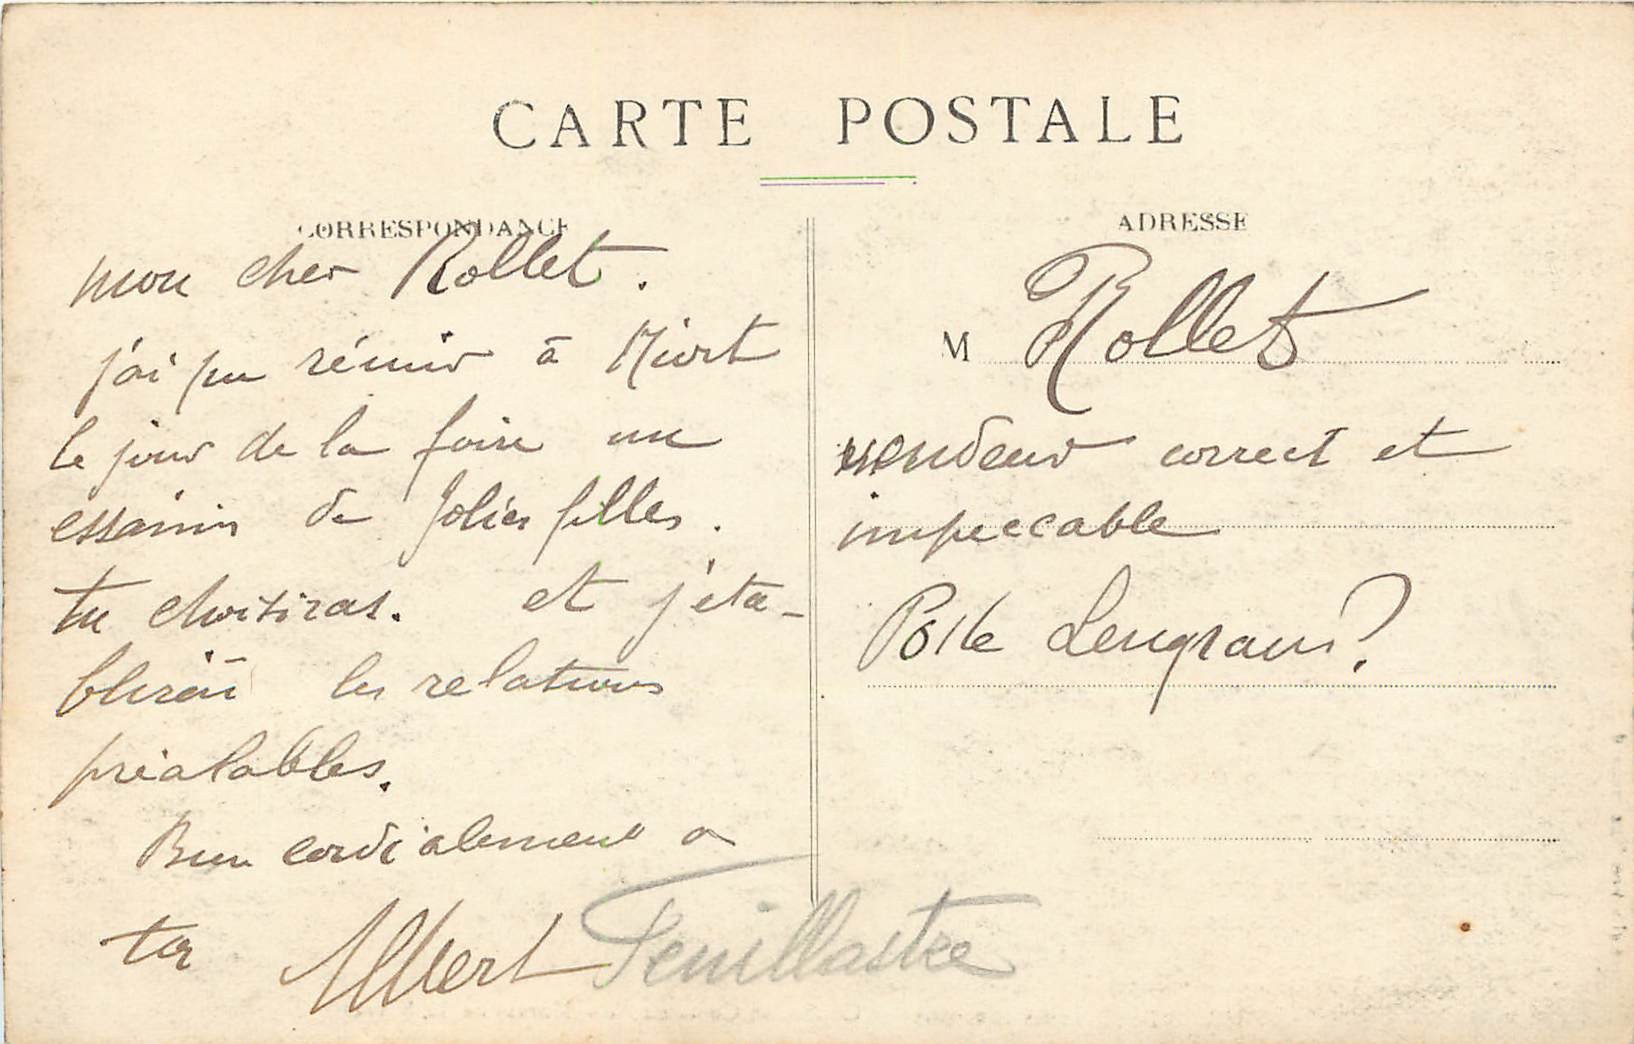 CARTE POSTALE
CORRESPONDANCE
mon cher Rollet.
j'ai pu réunir à Niort
le jour de la foire un
essaim de Jolies filles.
tu choisiras. et j'éta-
blirai les relations
préalables.
Bien cordialement a
toi Albert Feuillastre
ADRESSE
M Rollet
vendeur correct et
impeccable
Poste